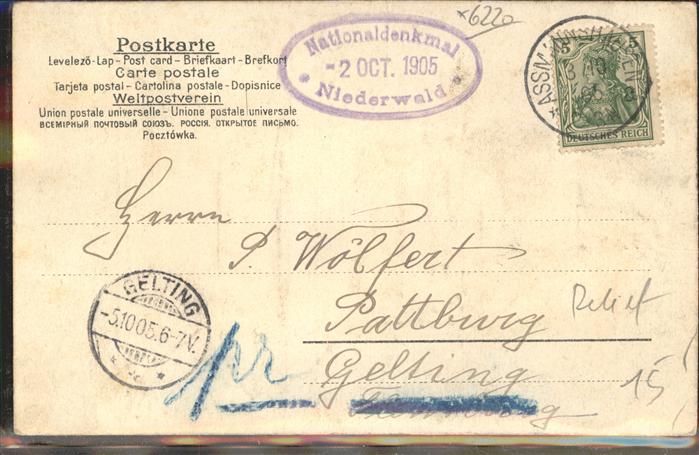 Postkarte
Levelező-Lap - Post card - Briefkaart - Brefkort
Carte postale
Tarjeta postal - Cartolina postale - Dopisnice
Weltpostverein
Union postale universelle - Unione postale universale
ВСЕМІРНЫЙ ПОЧТОВЫЙ СОЮЗЪ. РОССІЯ. ОТКРЫТОЕ ПИСЬМО.
Pocztówka.
*6220
Nationaldenkmal
-2 OCT. 1905
* Niederwald *
* ASSMANNSHAUSEN
5 5
DEUTSCHES REICH
Herrn
P. Wölfert
Pattburg
Relief
pr Gelting
15
GELTING
-5.10 05.6-7V.